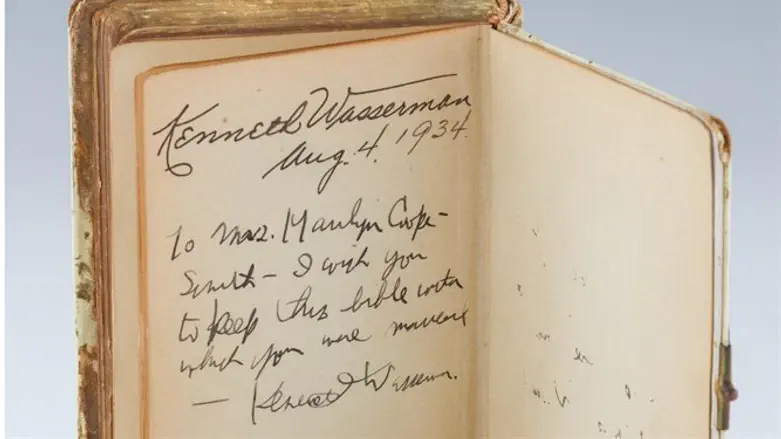 Kenneth Wasserman
Aug. 4. 1934.
To Mrs. Marilyn Coope-
Smith – I wish you
to keep this bible with
which you were married
— Kenneth Wasserman.